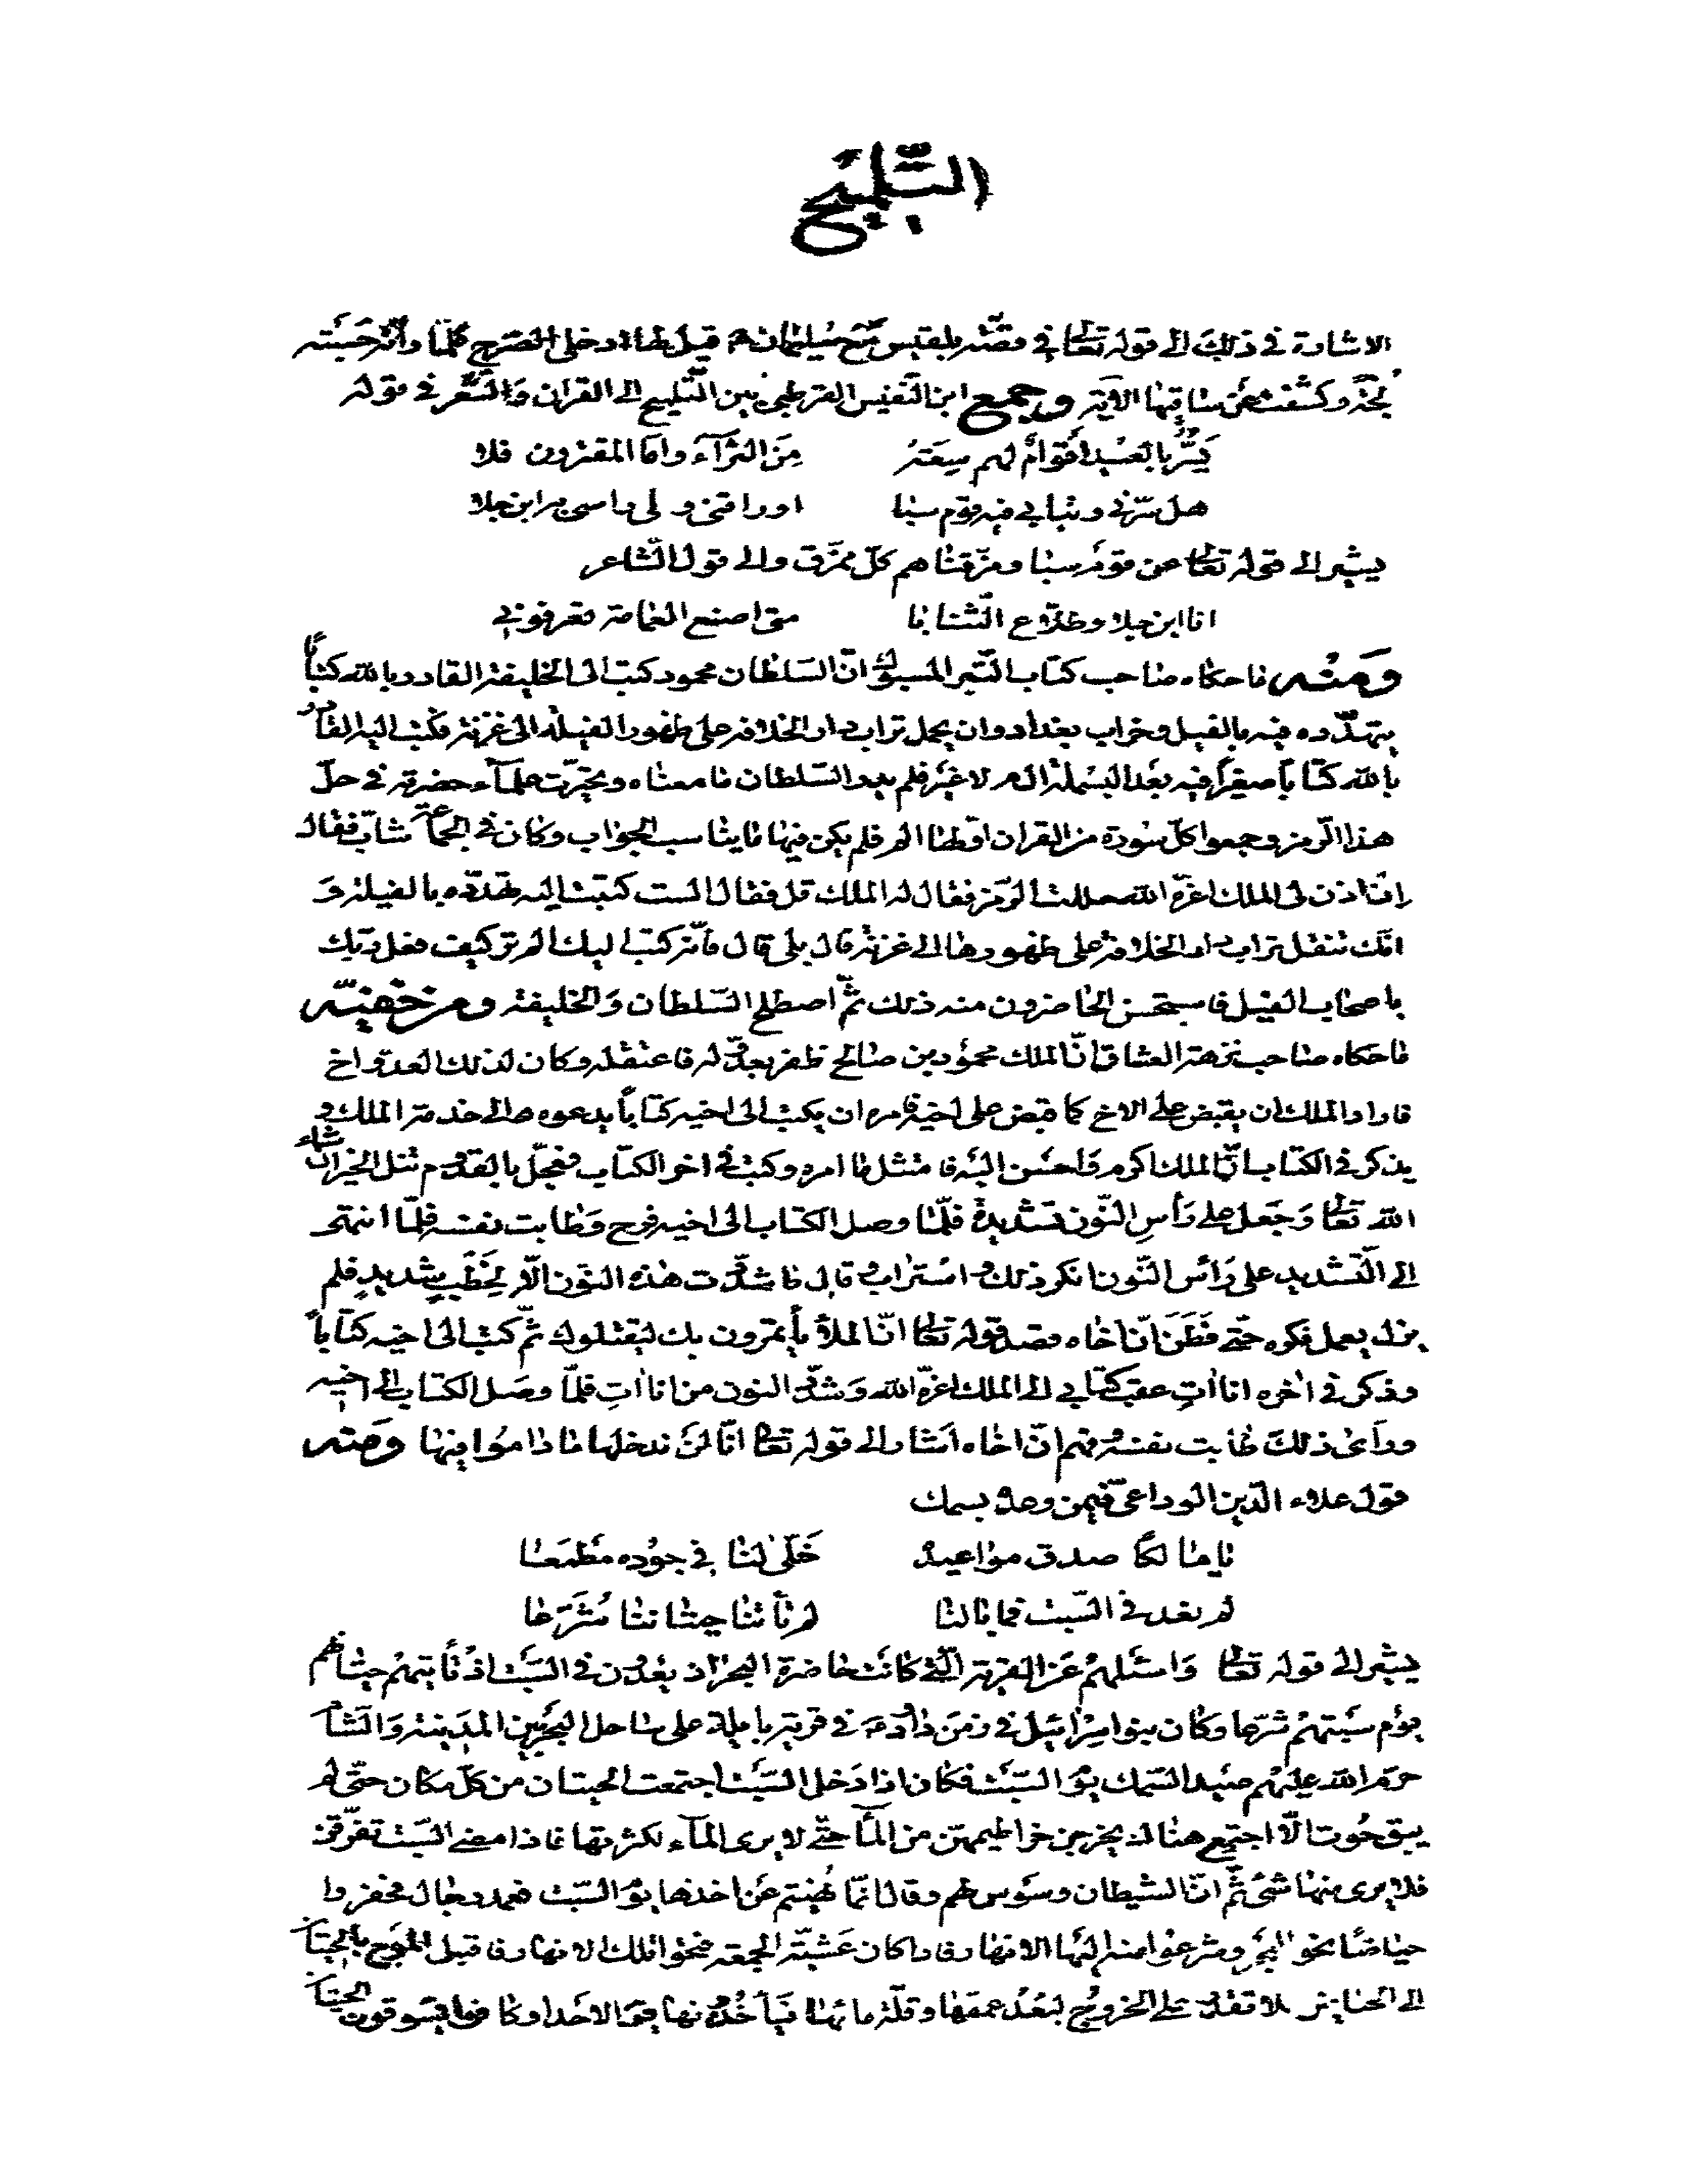 التلميح
الاشارة في ذلك الى قوله تعالى في قصّة بلقيس مع سليمان ع قيل لها ادخلى الصّرح فلمّا رأته حسبته
لجّة وكشفت عن ساقيها الآية وجمع ابن النّفيس القرطبي بين التّلميح الى القران والشّعر في قوله
يَسُرُّ بالعيد أقوامٌ لهم سِعَة من الثّرآء وامّا المقترون فلا
هل سرّني وثيابي فيه قوم سبا او راقني وعلى راسي به ابن جلا
يشير الى قوله تعالى عن قوم سبا ومزّقناهم كلّ ممزّق والى قول الشّاعر
انا ابن جلا وطلّاع الثّنايا متى اضع العمامة تعرفوني
ومنه ما حكاه صاحب كتاب التّبر المسبوك انّ السّلطان محمود كتب الى الخليفة القادر بالله كتاباً
يتهدّده فيه بالفيل وخراب بغداد وان يحمل تراب دار الخلافة على ظهور الفيلة الى غزنة فكتب اليه القادر
بالله كتاباً صغيراً فيه بعد البسملة الم لا غير فلم يدر السّلطان ما معناه وتحيّرت علمآء حضرته في حلّ
هذا الرّمز وجمعوا كلّ سورة من القران اوّلها الم فلم يكن فيها ما يناسب الجواب وكان في الجماعة شابّ فقال
ان اذن لى الملك اعزّه الله حللت الرّمز فقال له الملك قل فقال الست كتبت اليه تهدّده بالفيلة و
انّك تنقل تراب دار الخلافة على ظهورها الى غزنة قال بلى قال فانّه كتب اليك الم تر كيف فعل ربّك
باصحاب الفيل فاستحسن الحاضرون منه ذلك ثمّ اصطلح السّلطان والخليفة ومن خفيّه
ما حكاه صاحب نزهة العشاق انّ الملك محمود بن صالح ظفر بعدوّ له فاعتقله وكان لذلك العدوّ اخ
فاراد الملك ان يقبض على الاخ كما قبض على اخيه فامره ان يكتب الى اخيه كتاباً يدعوه الى خدمة الملك و
يذكر في الكتاب انّ الملك اكرمه واحسن اليه فامتثل ما امره وكتب في اخر الكتاب فعجّل بالقدوم تنل الخير ان شاء
الله تعالى وجعل على رأس النّون تشديدة فلمّا وصل الكتاب الى اخيه فرح وطابت نفسه فلمّا انتهى
الى التّشديد على رأس النّون انكر ذلك واستراب وقال ما شدّدت هذه النون الّا لخطب شديد فلم
يزل يعمل فكره حتّى فطن انّ اخاه قصد قوله تعالى انّ الملأ يأتمرون بك ليقتلوك ثمّ كتب الى اخيه كتاباً
وذكر في اخره انا اتٍ عقب كتابي الى الملك اعزّه الله وشدّد النون من انا اتٍ فلمّا وصل الكتاب الى اخيه
ورآى ذلك طابت نفسه وفهم انّ اخاه اشار الى قوله تعالى انّا لن ندخلها ما داموا فيها ومنه
قول علاء الدّين الوداعيّ فيمن وعده بسمك
يا مالكاً صدق مواعيده خلّى لنا في جوده مطمعا
لم نعد في السّبت فما بالنا لم تأتنا حيتاننا شرّعا
يشير الى قوله تعالى واسئلهم عن القرية الّتي كانت حاضرة البحر اذ يعدون في السّبت اذ تأتيهم حيتانهم
يوم سبتهم شرّعا وكان بنوا اسرائيل في زمن داود ع في قرية بايلة على ساحل البحر بين المدينة والشّام
حرّم الله عليهم صيد السّمك يوم السّبت فكان اذا دخل السّبت اجتمعت الحيتان من كلّ مكان حتّى لم
يبق حوت الّا اجتمع هناك يخرجن خراطيمهنّ من المآء حتّى لا يرى المآء لكثرتها فاذا مضى السّبت تفرّقن
فلا يرى منها شئ ثمّ انّ الشيطان وسوس لهم وقال انّما نهيتم عن اخذها يوم السّبت فعمد رجال فحفروا
حياضاً نحو البحر وشرعوا منه اليها الانهار فاذا كان عشيّة الجمعة فتحوا تلك الانهار فاقبل الموج بالحيتان
الى الحياض فلا تقدر على الخروج لبعد عمقها وقلّة مائها فيأخذونها يوم الاحد او كانوا يسوقون الحيتان